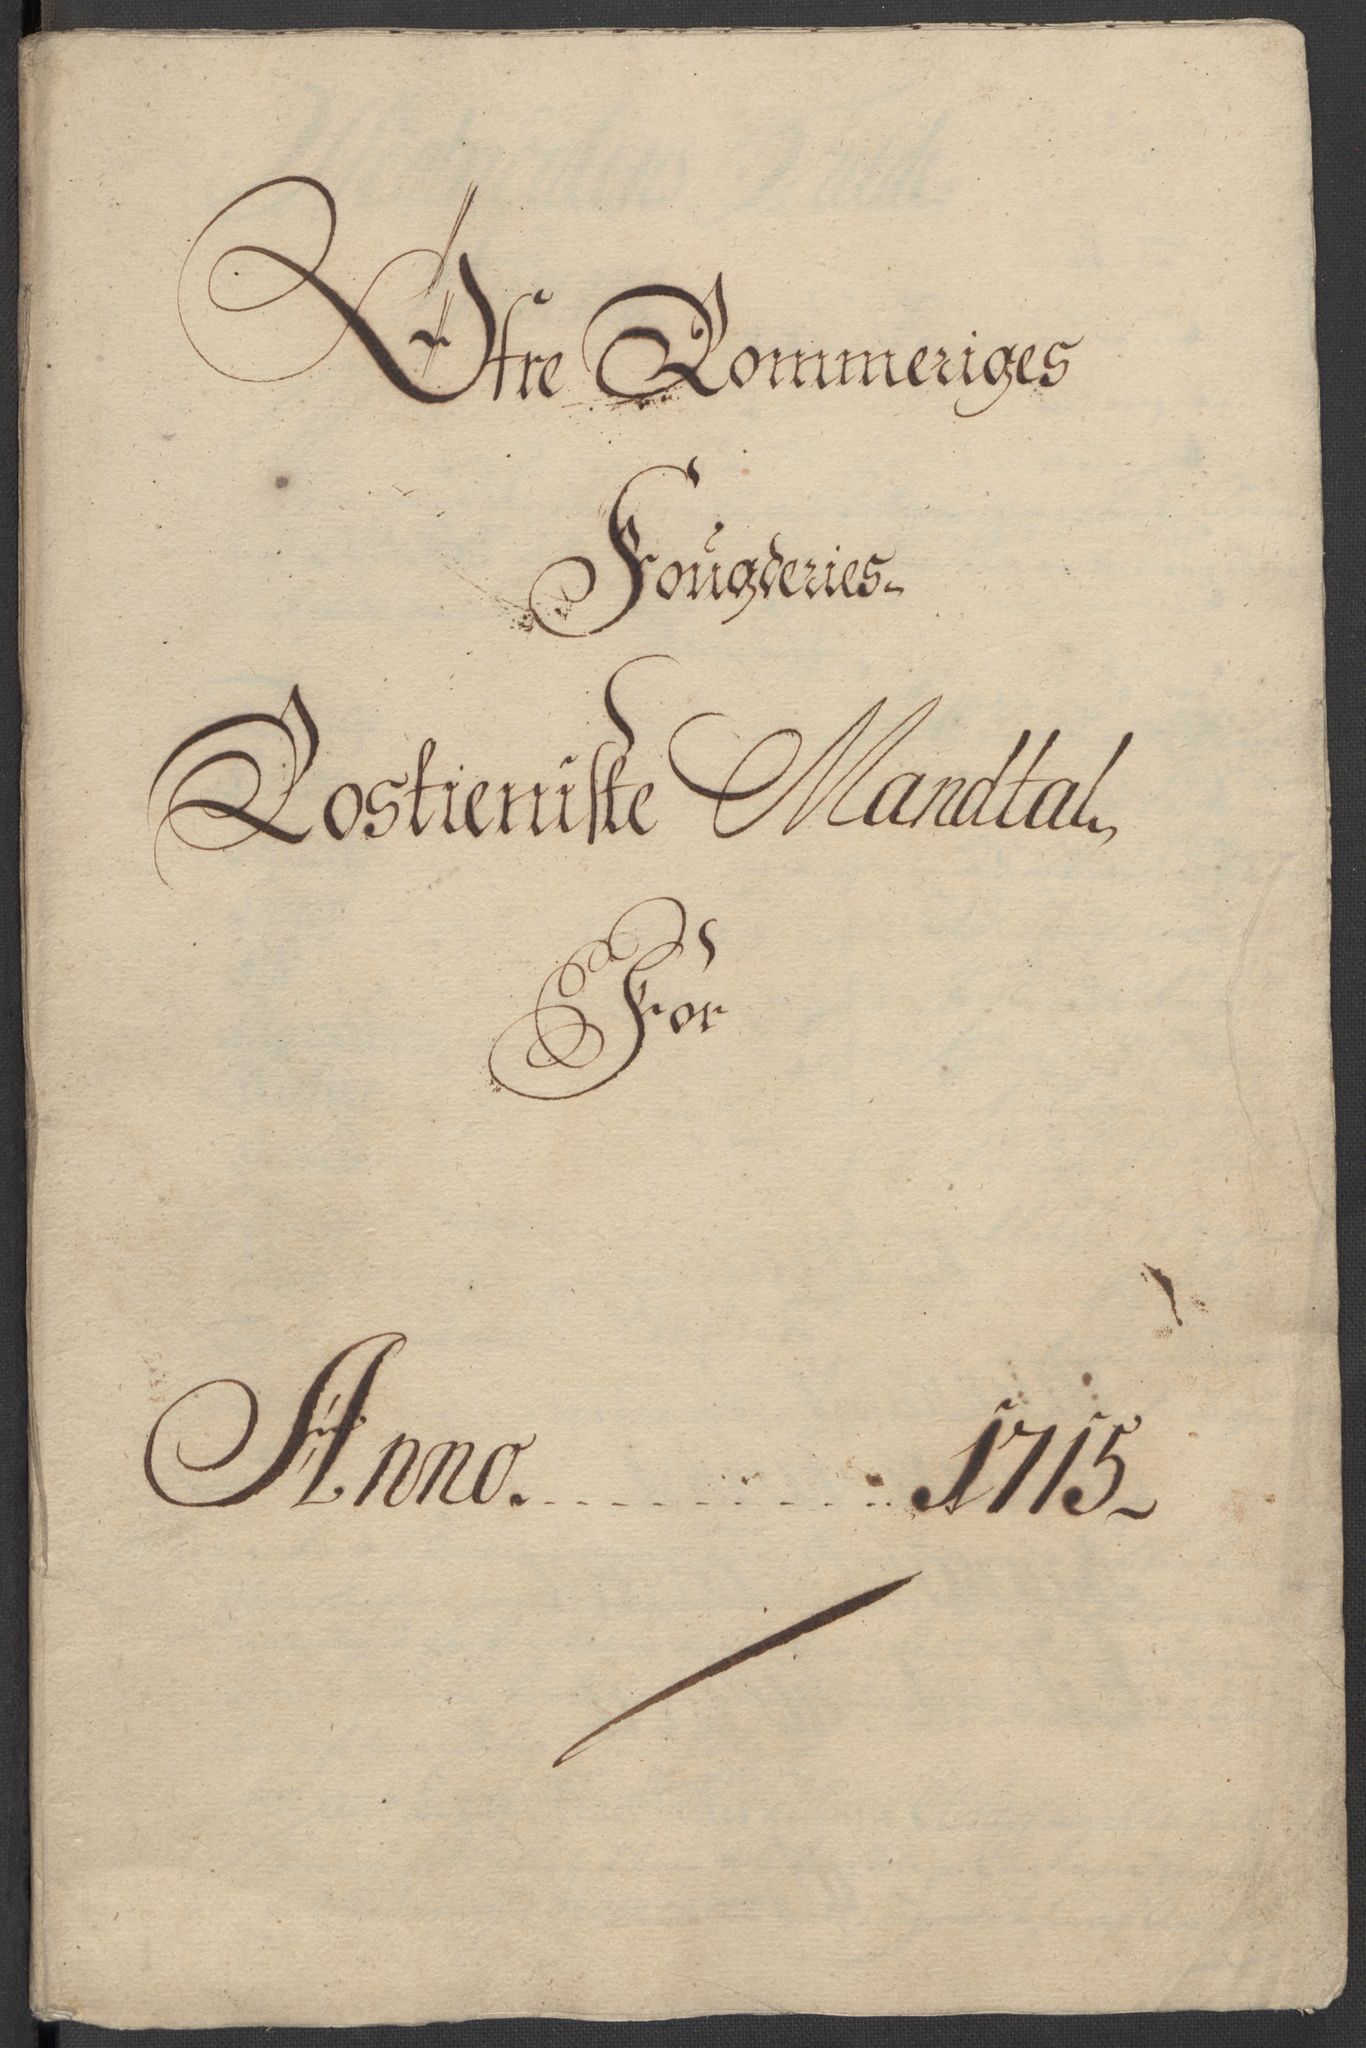 Øfre Rommeriges
Fougderies
Rostieniste Mandtal
For
Anno. 1715